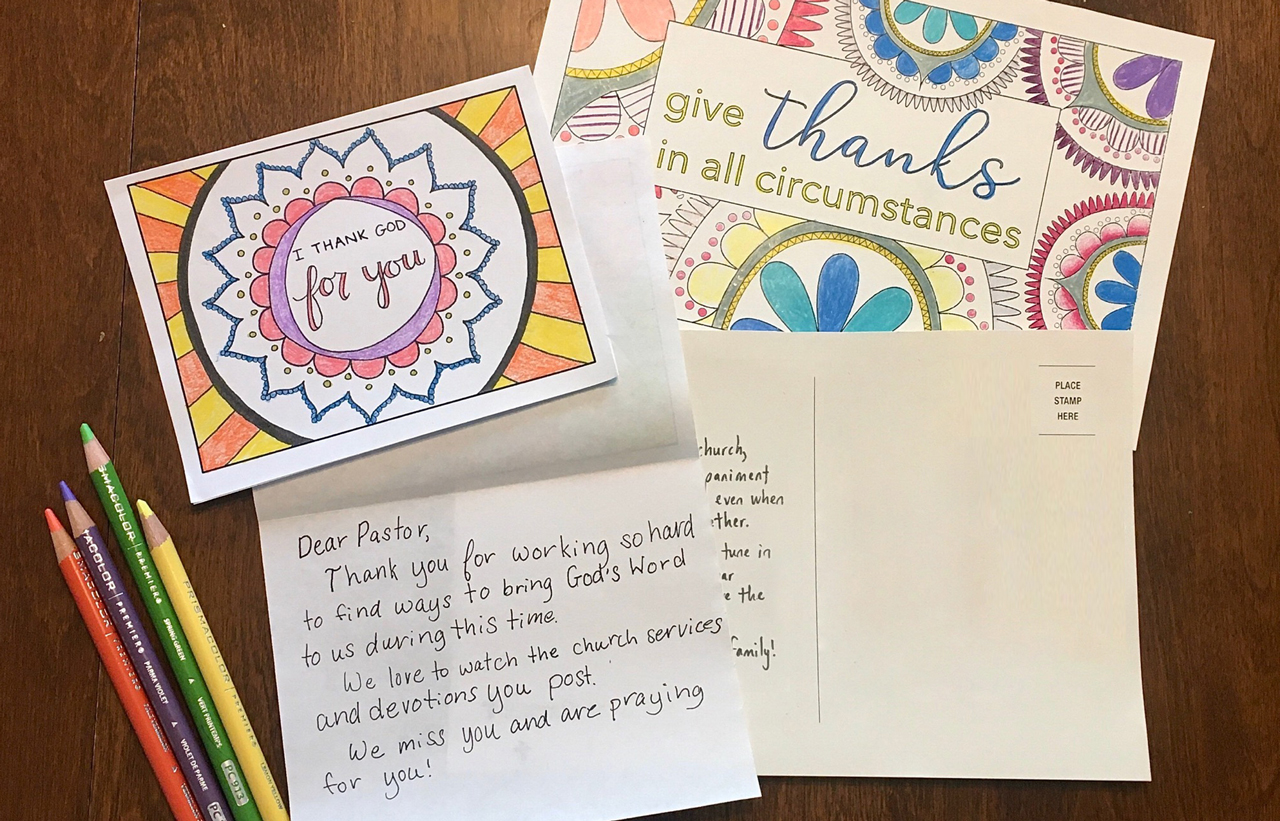 give thanks
in all circumstances
I THANK GOD
for you
PLACE
STAMP
HERE
Dear Pastor,
Thank you for working so hard
to find ways to bring God's Word
to us during this time.
We love to watch the church services
and devotions you post.
We miss you and are praying
for you!
church,
even when
tune in
the
family!
PRISMACOLOR PREMIER
SPRING GREEN
VERT PRINTEMPS
PC913
PREMIER
PARMA VIOLET
VIOLET DE PARME
PC
PRISMACOLOR